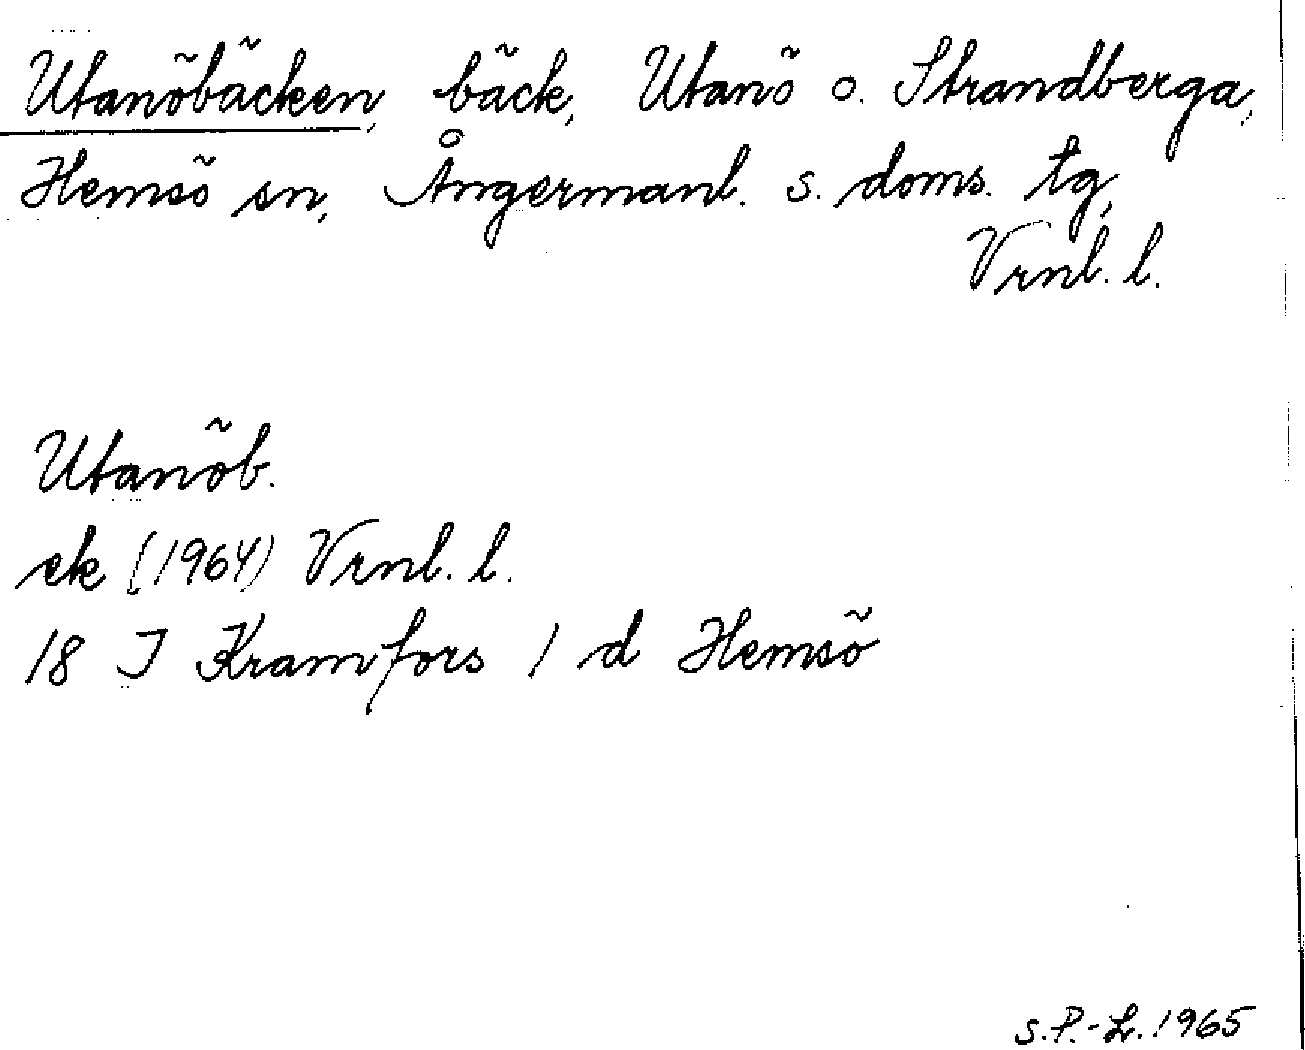 Utanöbäcken, bäck, Utanö o. Strandberga,
Hemsö sn, Ångermanl. s. doms. tg,
Vrnl. l.
Utanöb.
ek (1964) Vrnl. l.
18 J Kramfors 1 d Hemsö
S.P.-L. 1965